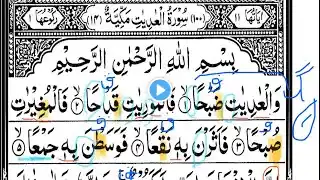 اٰیاتها ١١ (١٠٠) سُوْرَةُ الْعٰدِيٰتِ مَكِّيَّةٌ (١٤) رکوعها ١
بِسْمِ اللّٰهِ الرَّحْمٰنِ الرَّحِيْمِ
وَالْعٰدِيٰتِ ضَبْحًا ۙ‏١ فَالْمُوْرِيٰتِ قَدْحًا ۙ‏٢ فَالْمُغِيْرٰتِ
صُبْحًا ۙ‏٣ فَاَثَرْنَ بِهٖ نَقْعًا ۙ‏٤ فَوَسَطْنَ بِهٖ جَمْعًا ۙ‏٥